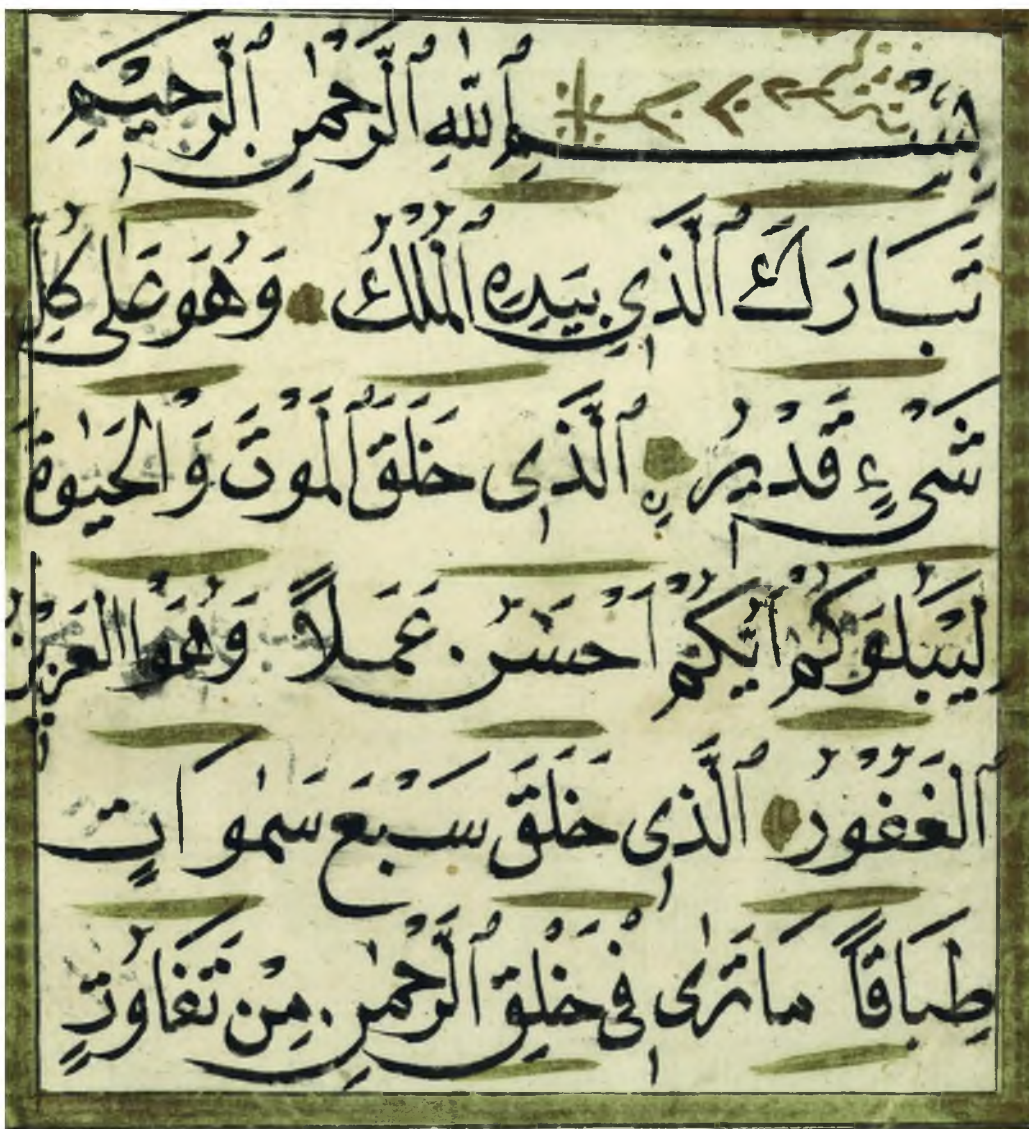 بِسْمِ ٱللّٰهِ ٱلرَّحْمٰنِ ٱلرَّحِيْمِ
تَبَارَكَ ٱلَّذِي بِيَدِهِ ٱلْمُلْكُ وَهُوَ عَلٰى كُلِّ
شَيْءٍ قَدْيرٌ ٱلَّذِى خَلَقَ ٱلْمَوْتَ وَالْحَيٰوةَ
لِيَبْلُوَكُمْ اَيُّكُمْ اَحْسَنُ عَمَلاً وَهُوَ الْعَزِيْزُ
ٱلْغَفُوْرُ ٱلَّذِى خَلَقَ سَبْعَ سَمٰوَاتٍ
طِبَاقًا مَا تَرٰى فِى خَلْقِ ٱلرَّحْمٰنِ مِنْ تَفَاوُتٍ